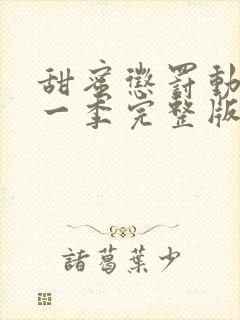 甜蜜懲罰動
一季完整版
諸葛葉少